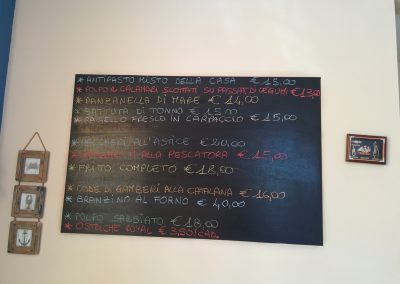 * ANTIPASTO MISTO DELLA CASA € 15,00
* POLPO E CALAMARI SCOTTATI SU PASSAT. DI LEGUMI € 13,00
* PANZANELLA DI MARE € 14,00
* BATTUTA DI TONNO € 15,00
FRESCO IN CARPACCIO € 15,00
* PACCHERI ALL'ASTICE € 20,00
* ALLA PESCATORA € 15,00
* FRITTO COMPLETO € 18,00
* CODE DI GAMBERI ALLA CATALANA € 16,00
* BRANZINO AL FORNO € 40,00
* POLPO SABBIATO € 18,00
* OSTRICHE ROYAL € 3,50/CAD.